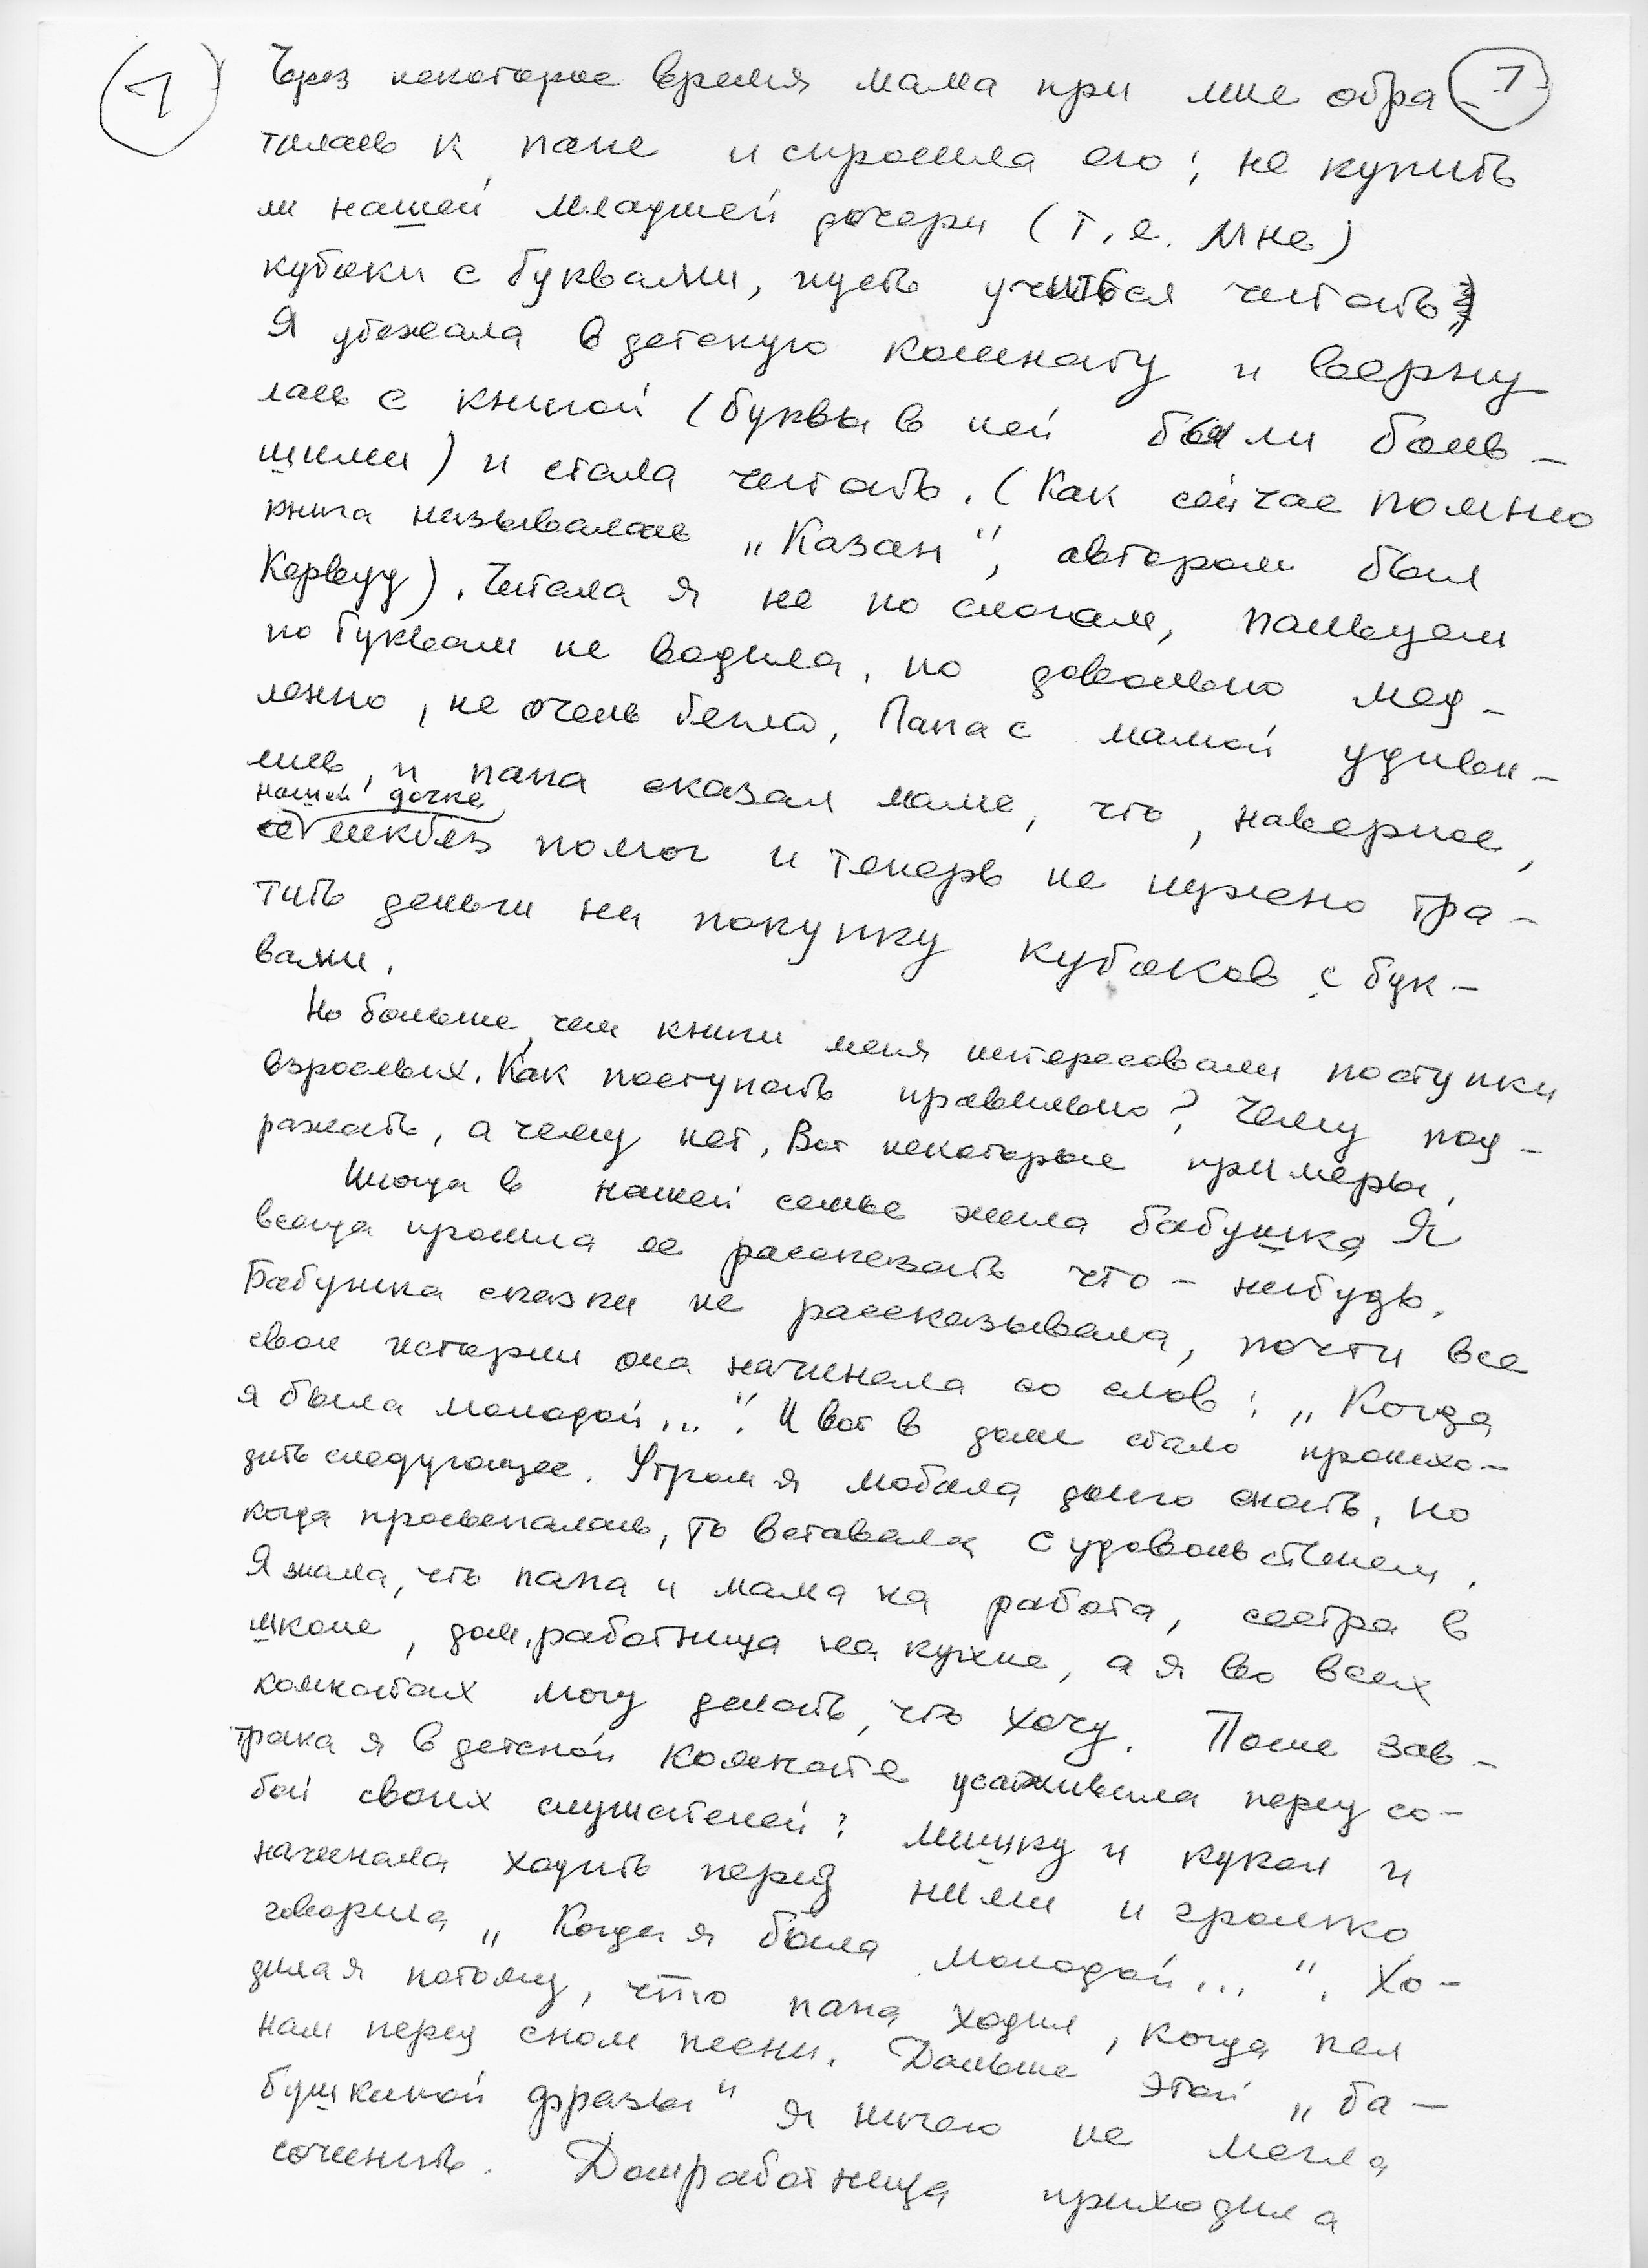 1
Через некоторое время мама при мне обра-
7
тилась к папе и спросила его: не купить
ли нашей младшей дочери (т.е. мне)
кубики с буквами, пусть учится читать
Я убежала в детскую комнату и верну
лась с книгой (буквы в ней были боль-
шими) и стала читать. (Как сейчас помню
книга называлась „Казан", автором был
Кервуд). Читала я не по слогам, пальцем
по буквам не водила, но довольно мед-
ленно, не очень бегло. Папа с мамой удиви-
лись, и папа сказал маме, что, наверное,
нашей дочке
ликбез помог и теперь не нужно тра-
тить деньги на покупку кубиков с бук-
вами.
Но больше, чем книги меня интересовали поступки
взрослых. Как поступать правильно? Чему под-
ражать, а чему нет. Вот некоторые примеры.
Иногда в нашей семье жила бабушка. Я
всегда просила ее рассказать что-нибудь.
Бабушка сказки не рассказывала, почти все
свои истории она начинала со слов: „Когда
я была молодой...". И вот в доме стало происхо-
дить следующее. Утром я любила долго спать, но
когда просыпалась, то вставала с удовольствием.
Я знала, что папа и мама на работа, сестра в
школе, дом.работница на кухне, а я во всех
комнатах могу делать, что хочу. После зав-
трака я в детской комнате усаживала перед со-
бой своих слушателей: мишку и кукол и
начинала ходить перед ними и громко
говорила „Когда я была молодой...". Хо-
дила я потому, что папа ходил, когда пел
нам перед сном песни. Дальше этой „ба-
бушкиной фразы" я ничего не могла
сочинить. Домработница приходила